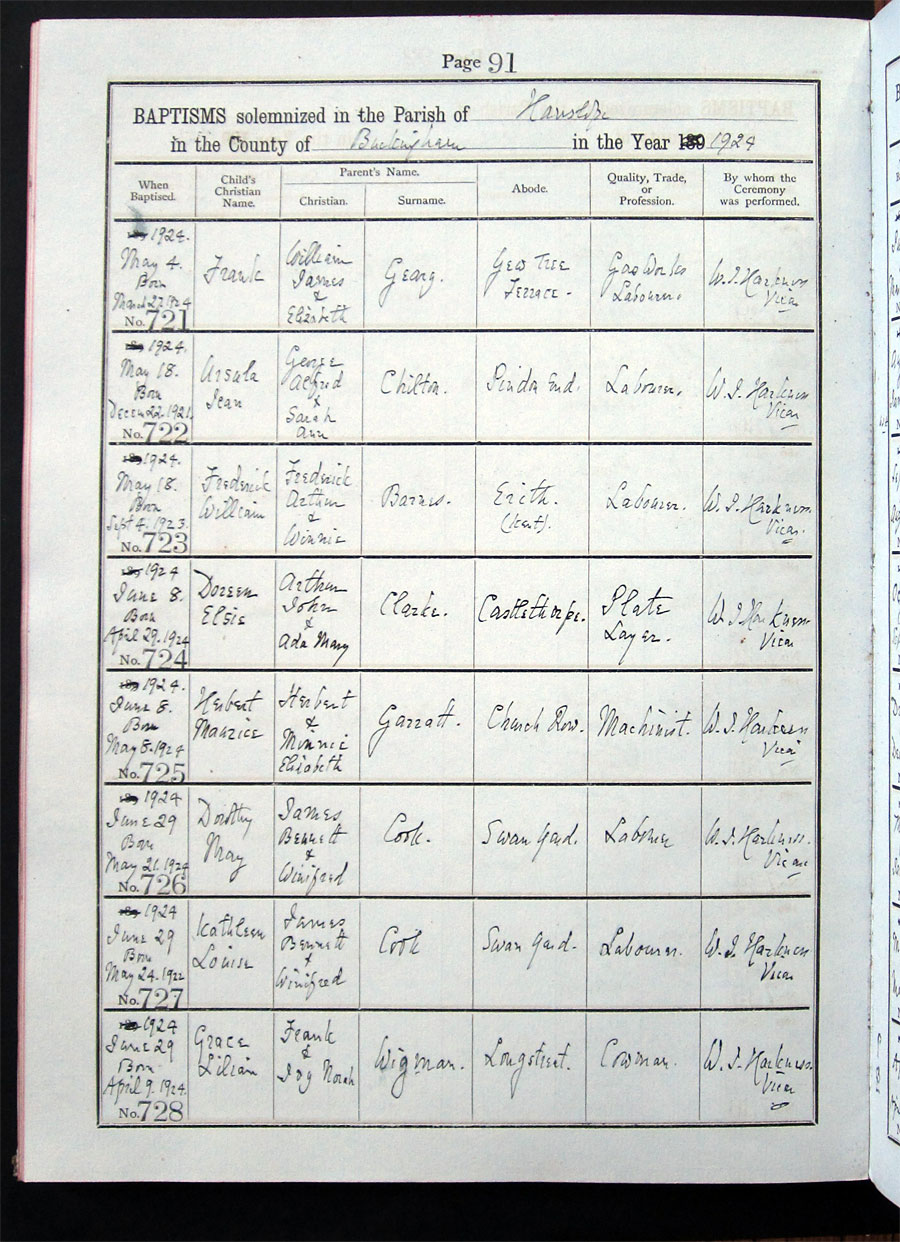 Page 91
BAPTISMS solemnized in the Parish of Hanslope
in the County of Buckingham in the Year 189 1924
When Baptised.
Child's Christian Name.
Parent's Name.
Christian.
Surname.
Abode.
Quality, Trade, or Profession.
By whom the Ceremony was performed.
1924.
May 4.
Born
March 27. 1924
No. 721
Frank
William
James
&
Elizabeth
Georg.
Yew Tree
Terrace.
Gas Works
Labourer.
W. J. Harkness
Vicar
1924.
May 18.
Born
Decem 22. 1921.
No. 722
Ursula
Jean
George
Alfred
&
Sarah
Ann
Chilton.
End.
Labourer.
W. J. Harkness
Vicar
1924.
May 18.
Born
Sept 4. 1923.
No. 723
Frederick
William
Frederick
Arthur
&
Winnie
Barnes.
Erith.
(Kent).
Labourer.
W. J. Harkness
Vicar.
1924
June 8.
Born
April 29. 1924
No. 724
Doreen
Elsie
Arthur
John
&
Ada Mary
Clarke.
Castlethorpe.
Plate
Layer.
W. J. Harkness
Vicar
1924.
June 8.
Born
May 8. 1924
No. 725
Herbert
Maurice
Herbert
&
Minnie
Elizabeth
Garratt.
Church Row.
Machinist.
W. J. Harkness
Vicar
1924
June 29
Born
May 21. 1924
No. 726
Dorothy
May
James
Bennett
&
Winifred
Cook.
Swan Yard.
Labourer
W. J. Harkness.
Vicar
1924
June 29
Born
May 24. 1922
No. 727
Kathleen
Louise
James
Bennett
&
Winifred
Cook
Swan Yard.
Labourer.
W. J. Harkness
Vicar
1924
June 29
Born
April 9. 1924.
No. 728
Grace
Lilian
Frank
&
Ivy Norah
Wigman.
Longstreet.
Cowman.
W. J. Harkness.
Vicar